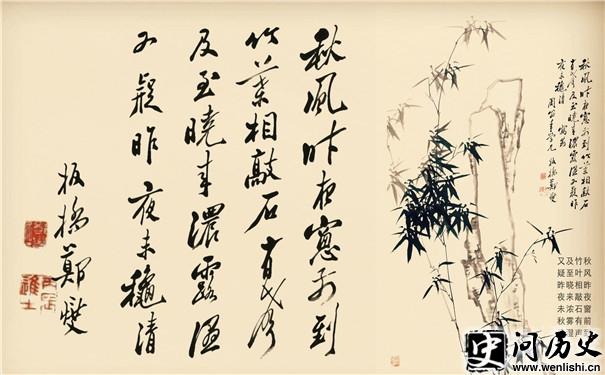 秋風昨夜窓前到
竹葉相敲石有声
及至曉来濃露濕
又疑昨夜未穐清
板橋鄭燮
秋風昨夜窓前到竹葉相敲石
有声及至曉来濃露濕又疑昨
夜未穐清
板橋鄭燮
秋风昨夜窗前到
竹叶相敲石有声
及至晓来浓雾湿
又疑昨夜未秋
史 问历史
www.wenlishi.cn